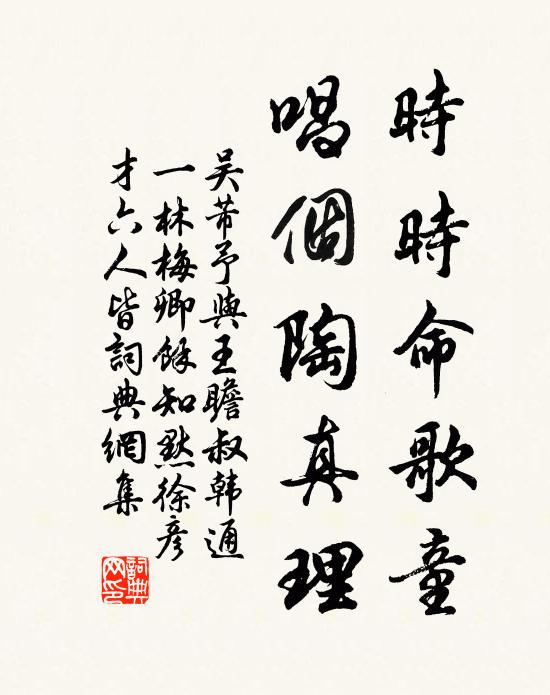 時時命歌童
唱個陶真理
吴芾予與王瞻叔韓通
一林梅卿餘知默徐彦
才六人皆詞典網集
詞典
网印